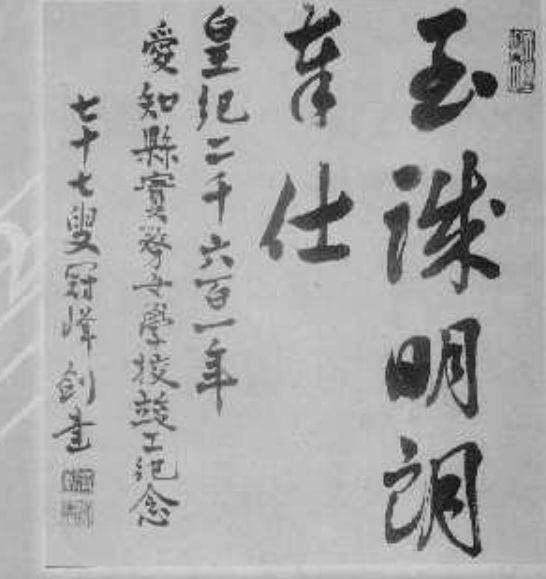 至誠明朗
奉仕
皇紀二千六百一年
愛知縣實務女學校竣工紀念
七十七叟冠峰書